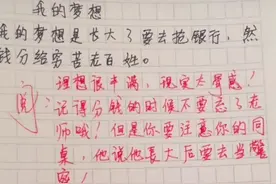 我的梦想
我的梦想是长大了要去抢银行，然
钱分给穷苦老百姓。
阅：理想很丰满，现实太骨感！
记得分钱的时候不要忘了老
师哦！但是你要注意你的同
桌，他说他长大后要去当警
察！